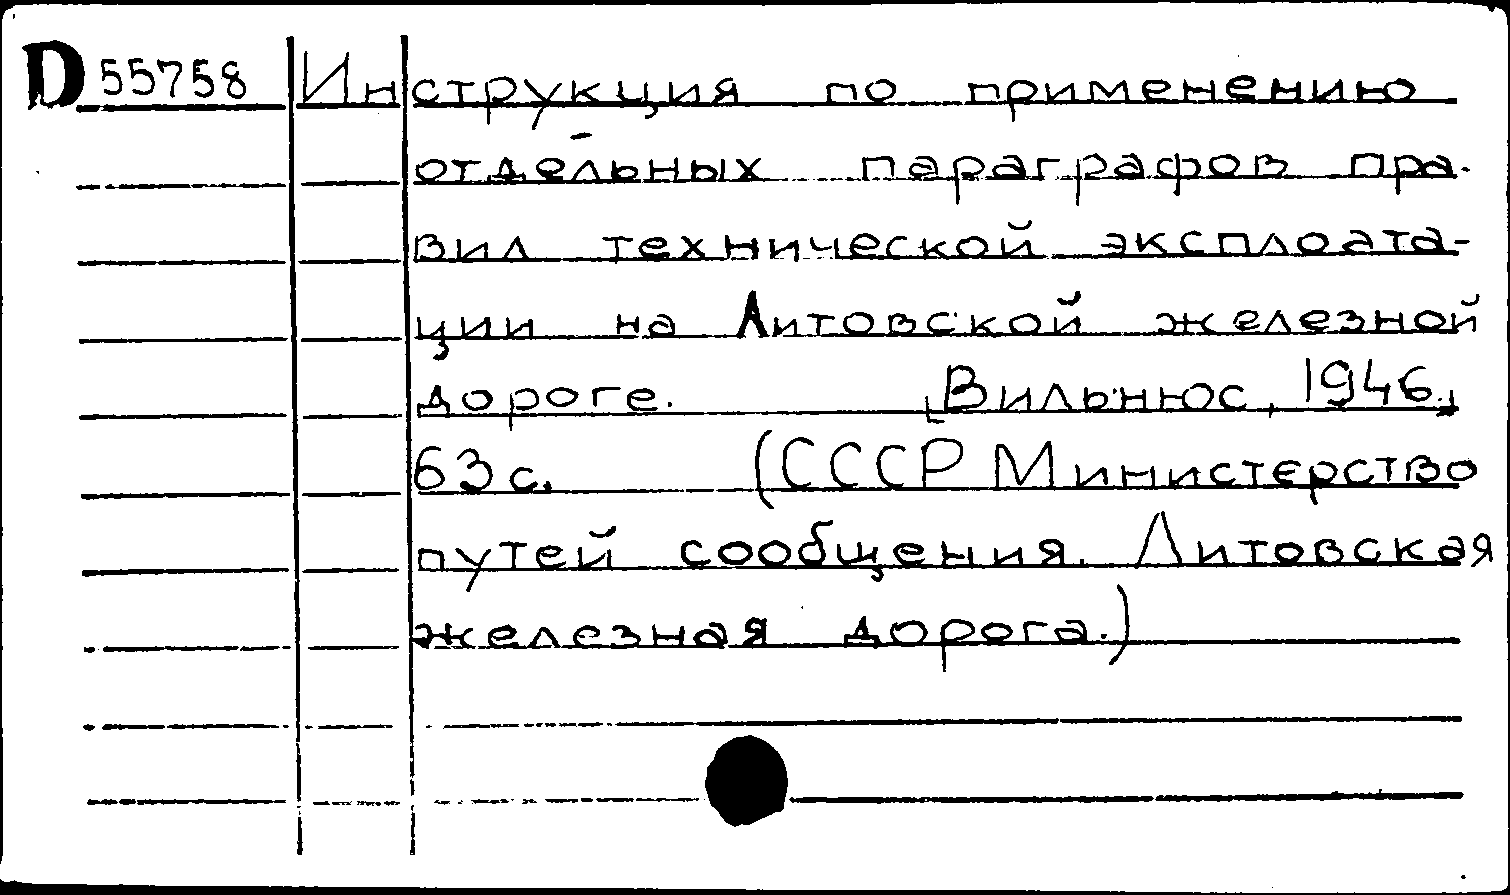 D 55758 Инструкция по применению
отдельных параграфов пра-
вил технической эксплоата-
ции на Литовской железной
дороге. [Вильнюс, 1946.]
63 с. (СССР Министерство
путей сообщения. Литовская
железная дорога.)